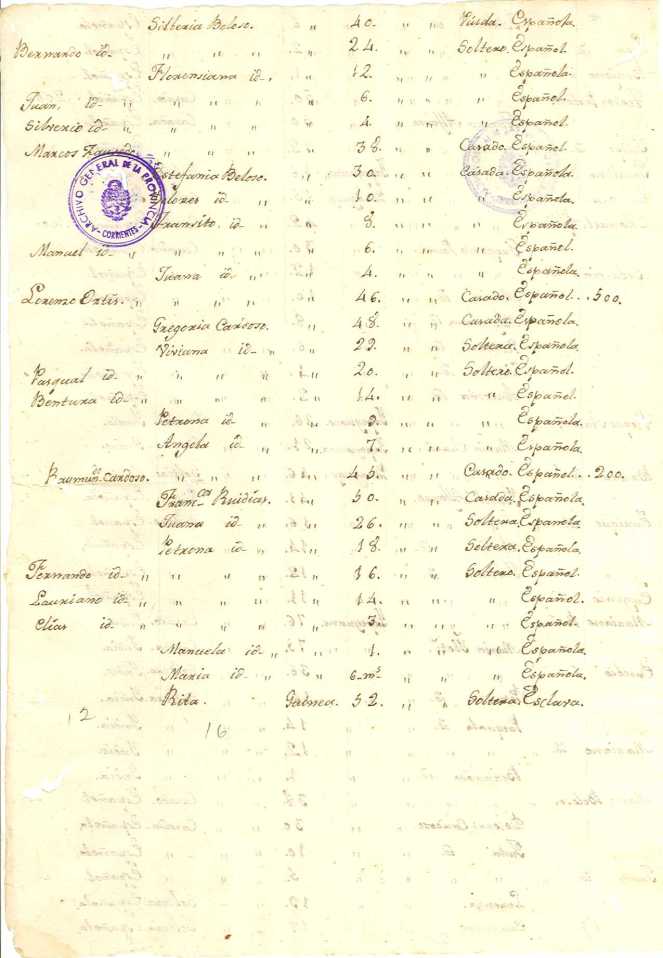 Silberia Beloso. „ „ 40. „ „ Viuda. Española.
Bernardo id- „ „ „ „ 24. „ „ Soltero. Español.
Florensiana id- „ „ 12. „ „ „ Española.
Juan. id- „ „ „ „ „ 6. „ „ „ Español.
Silverio id- „ „ „ „ „ 4. „ „ „ Español.
Marcos „ „ „ „ 38. „ „ Casado. Español.
Estefania Beloso. „ „ 30. „ „ Casada. Española.
Dolores id- „ „ 10. „ „ „ Española.
Transito. id- „ „ 8. „ „ „ Española.
Manuel id- „ „ „ „ „ 6. „ „ „ Español.
Juana id- „ „ 4. „ „ „ Española.
Lorenzo Ortis. „ „ „ „ „ 46. „ „ Casado. Español. . . 500.
Gregoria Cardoso. „ „ 48. „ „ Casada. Española.
Viviana id- „ „ 22. „ „ Soltera. Española.
Pasqual id- „ „ „ „ „ 20. „ „ Soltero. Español.
Bentura id- „ „ „ „ „ 14. „ „ „ Español.
Petrona id- „ „ 9. „ „ „ Española.
Angela id- „ „ 7. „ „ „ Española.
Raymun.do Cardoso. „ „ „ „ 45. „ „ Casado. Español. . . 200.
Fran.ca Ruidias. „ „ 50. „ „ Casada. Española.
Juana id- „ „ 26. „ „ Soltera. Española.
Petrona id- „ „ 18. „ „ Soltera. Española.
Fernando id- „ „ „ „ „ 16. „ „ Soltero. Español.
Lauriano id- „ „ „ „ „ 14. „ „ „ Español.
Elías id- „ „ „ „ „ 3. „ „ „ Español.
Manuela id- „ „ 1. „ „ „ Española.
Maria id- „ „ 6-ms „ „ „ Española.
Rita. Guinea. 52. „ „ Soltera. Esclava.
12 16
ARCHIVO GENERAL DE LA PROVINCIA
- CORRIENTES -